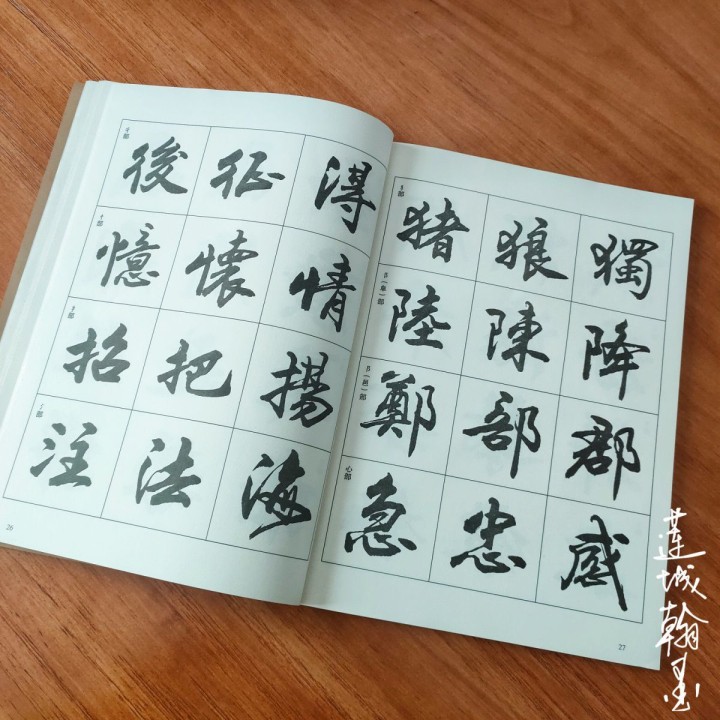 彳部
後 征 得
忄部
憶 懷 情
扌部
招 把 揚
氵部
注 法 海
26
犭部
猪 狼 獨
阝（阜）部
陸 陳 降
阝（邑）部
鄭 部 郡
心部
急 忠 感
27
蓮城翰墨